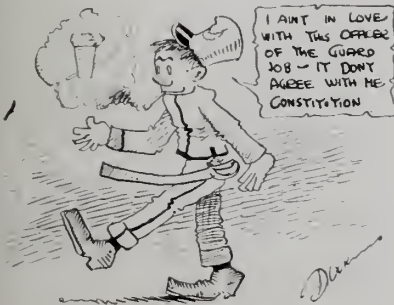 I AINT IN LOVE
WITH THIS OFFICER
OF THE GUARD
JOB - IT DONT
AGREE WITH ME
CONSTITUTION